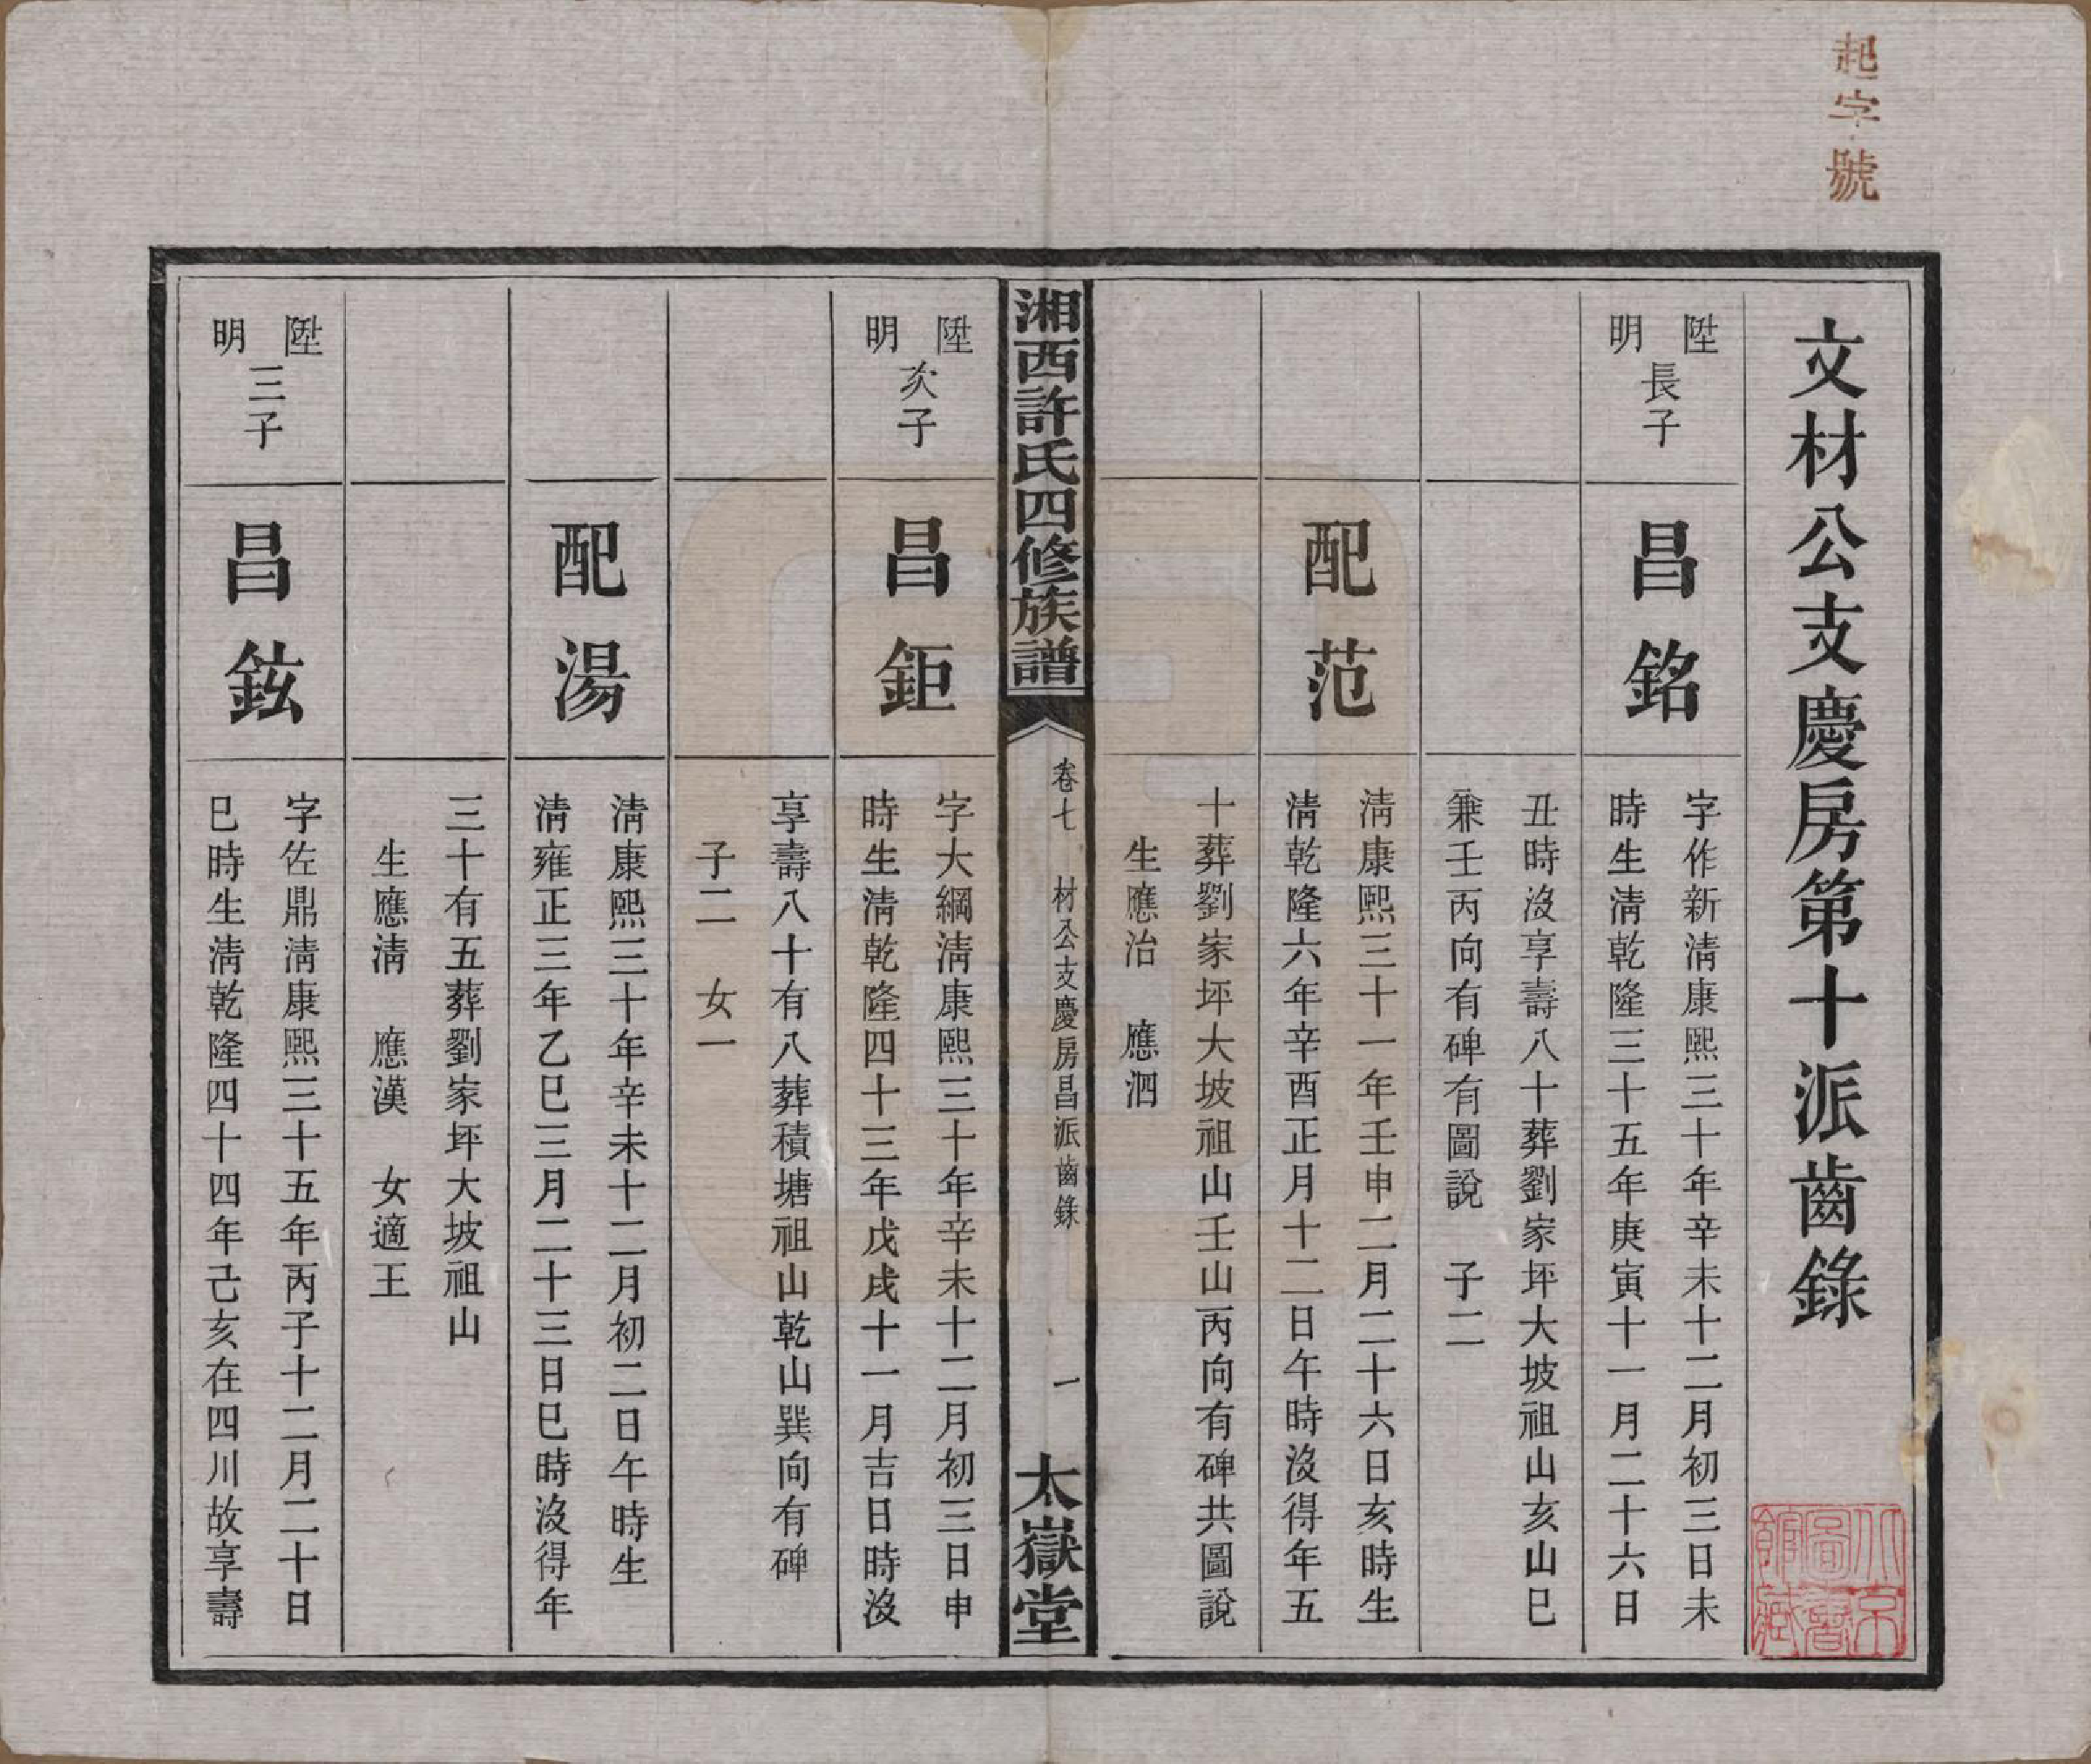 起字號
文材公支慶房第十派齒錄
陞明長子
昌銘
字作新淸康熙三十年辛未十二月初三日未
時生淸乾隆三十五年庚寅十一月二十六日
丑時沒享壽八十葬劉家坪大坡祖山亥山巳
兼壬丙向有碑有圖說　子二
配范
淸康熙三十一年壬申二月二十六日亥時生
淸乾隆六年辛酉正月十二日午時沒得年五
十葬劉家坪大坡祖山壬山丙向有碑共圖說
生應治　應泗
湘西許氏四修族譜
卷七　材公支慶房昌派齒錄　一
太嶽堂
陞明次子
昌鉅
字大綱淸康熙三十年辛未十二月初三日申
時生淸乾隆四十三年戊戌十一月吉日時沒
享壽八十有八葬積塘祖山乾山巽向有碑
子二　女一
配湯
淸康熙三十年辛未十二月初二日午時生
淸雍正三年乙巳三月二十三日巳時沒得年
三十有五葬劉家坪大坡祖山
生應淸　應漢　女適王
陞明三子
昌鉉
字佐鼎淸康熙三十五年丙子十二月二十日
巳時生淸乾隆四十四年己亥在四川故享壽
北京圖書館藏